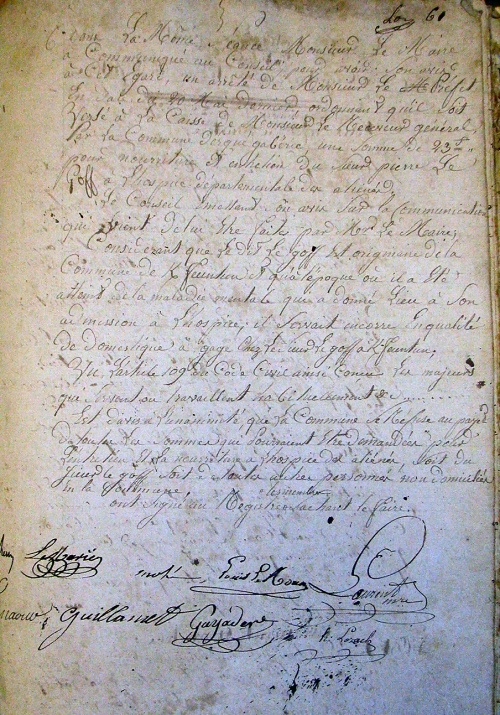 61
dans La Même Séance Monsieur Le Maire
a Communiqué au Conseil pour avoir Son avis
à Cet Egard, un arrêté de Monsieur Le Préfet
En date du 20 Mai Dernier ordonnant qu'il Soit
Versé à La Caisse de Monsieur Le Receveur général
par La Commune d'ergue gaberic une Somme de 23
pour nourriture et Entretien du Sieur pierre Le
goff à L'hospice départementale des aliénés,
Le Conseil Emettant Son avis Sur La Communication
qui vient de lui être faite par Mr Le Maire,
Considérant que Le dit Le goff Est origine de la
Commune de Et qu'a l'époque où il a Eté
atteint de la maladie mentale qui a donné Lieu à Son
admission à L'hospice, il Servait encore En qualité
de domestique à gage Chez Le Sieur Le goff a
Vu L'article 109 du Code Civil ainsi Concu Les majeurs
qui Servent ou Travaillent habituellement &
Est d'avis à L'unanimité que La Commune Se Refuse au payement
de toutes Les Sommes qui pourraient Etre demandées pour
L'entretien Et La nourriture à L'hospice des aliénés, Soit du
Sieur Le goff Soit de toutes autres personnes non domiciliées
En la Commune,
Les membres
ont Signé au Registre Sachant Le faire.
Laurent
maire
Guillamet Gaujader